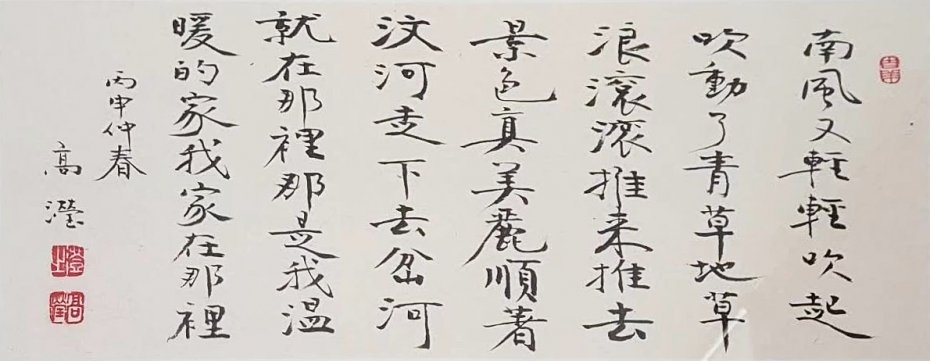 南風又輕輕吹起
吹動了青草地草
浪滾滾推来推去
景色真美麗順著
汶河走下去岔河
就在那裡那是我溫
暖的家我家在那裡
丙申仲春
高瀅